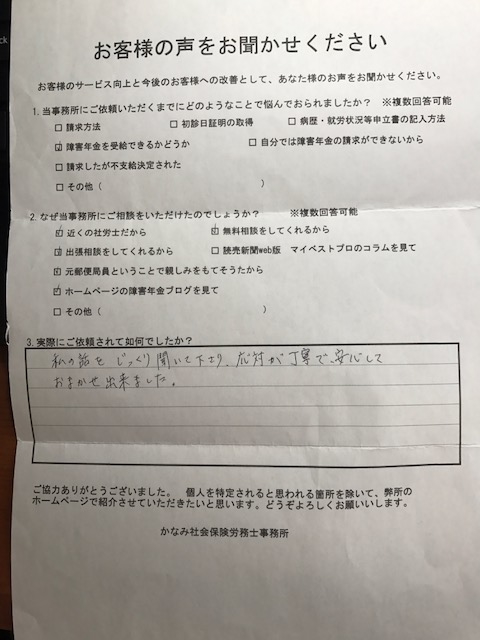 お客様の声をお聞かせください
お客様のサービス向上と今後のお客様への改善として、あなた様のお声をお聞かせください。
1. 当事務所にご依頼いただくまでにどのようなことで悩んでおられましたか？ ※複数回答可能
□ 請求方法 □ 初診日証明の取得 □ 病歴・就労状況等申立書の記入方法
☑ 障害年金を受給できるかどうか □ 自分では障害年金の請求ができないから
□ 請求したが不支給決定された
□ その他（ ）
2. なぜ当事務所にご相談をいただけたのでしょうか？ ※複数回答可能
☑ 近くの社労士だから ☑ 無料相談をしてくれるから
☑ 出張相談をしてくれるから □ 読売新聞web版 マイベストプロのコラムを見て
☑ 元郵便局員ということで親しみをもてそうたから
☑ ホームページの障害年金ブログを見て
□ その他（ ）
3. 実際にご依頼されて如何でしたか？
私の話を じっくり聞いて下さり、応対が丁寧で、安心して
おまかせ出来ました。
ご協力ありがとうございました。 個人を特定されると思われる箇所を除いて、弊所の
ホームページで紹介させていただきたいと思います。どうぞよろしくお願いいします。
かなみ社会保険労務士事務所